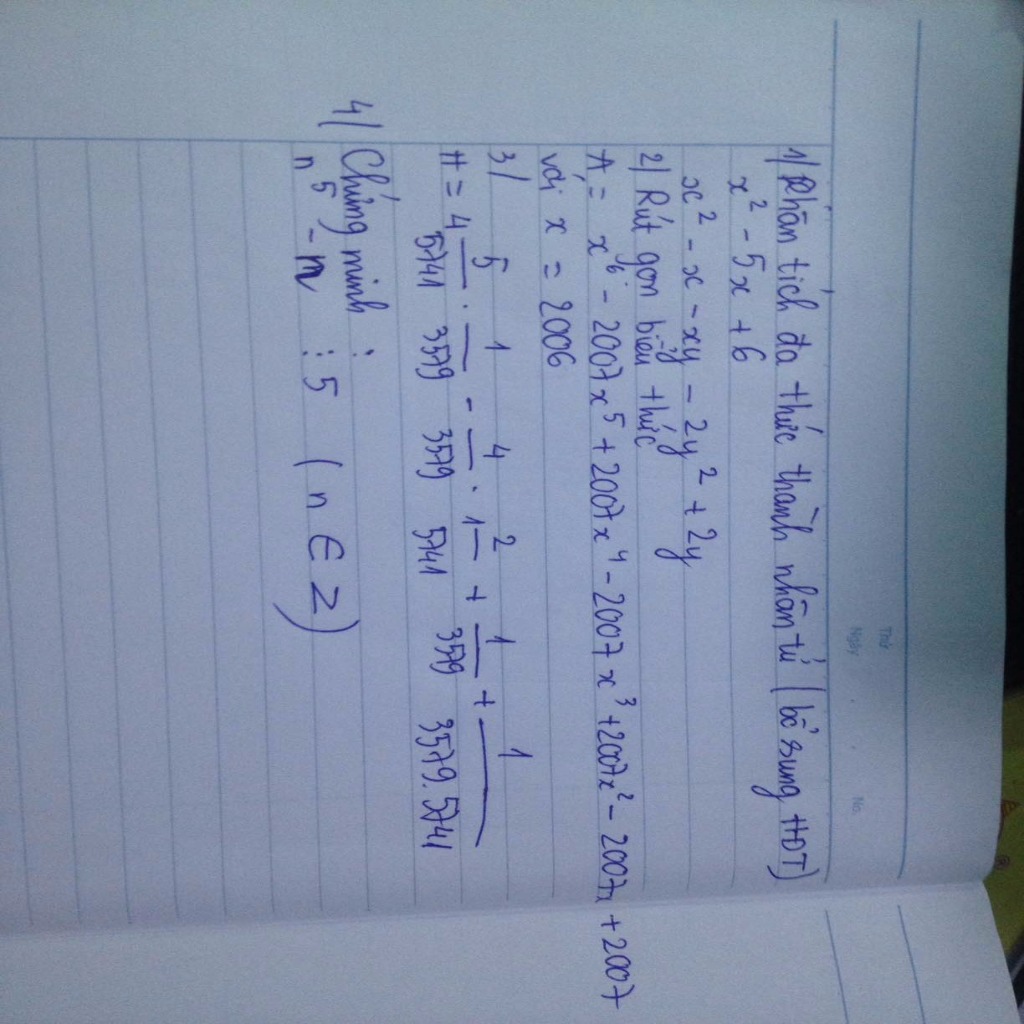 Thứ
Ngày
No.
1) Phân tích đa thức thành nhân tử (bổ sung HĐT)
x² - 5x + 6
x² - x - xy - 2y² + 2y
2) Rút gọn biểu thức
A = x⁶ - 2007x⁵ + 2007x⁴ - 2007x³ + 2007x² - 2007x + 2007
với x = 2006
3)
H = 4 5/5741 . 1/3579 - 4/3579 . 1 2/5741 + 1/3579 + 1/3579.5741
4) Chứng minh :
n⁵ - n ⋮ 5 (n ∈ Z)